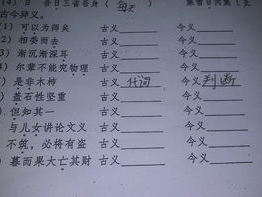 日 吾日三省吾身（每天）
古今异义。
1）可以为师矣 古义______ 今义______
2）相委而去 古义______ 今义______
3）渐沉渐深耳 古义______ 今义______
4）尔辈不能究物理 古义______ 今义______
）是非木杮 古义 代词 今义 判断
）盖石性坚重 古义______ 今义______
）但知其一 古义______ 今义______
与儿女讲论文义 古义______ 今义______
不筑，必将有盗 古义______ 今义______
）暮而果大亡其财 古义______ 今义______